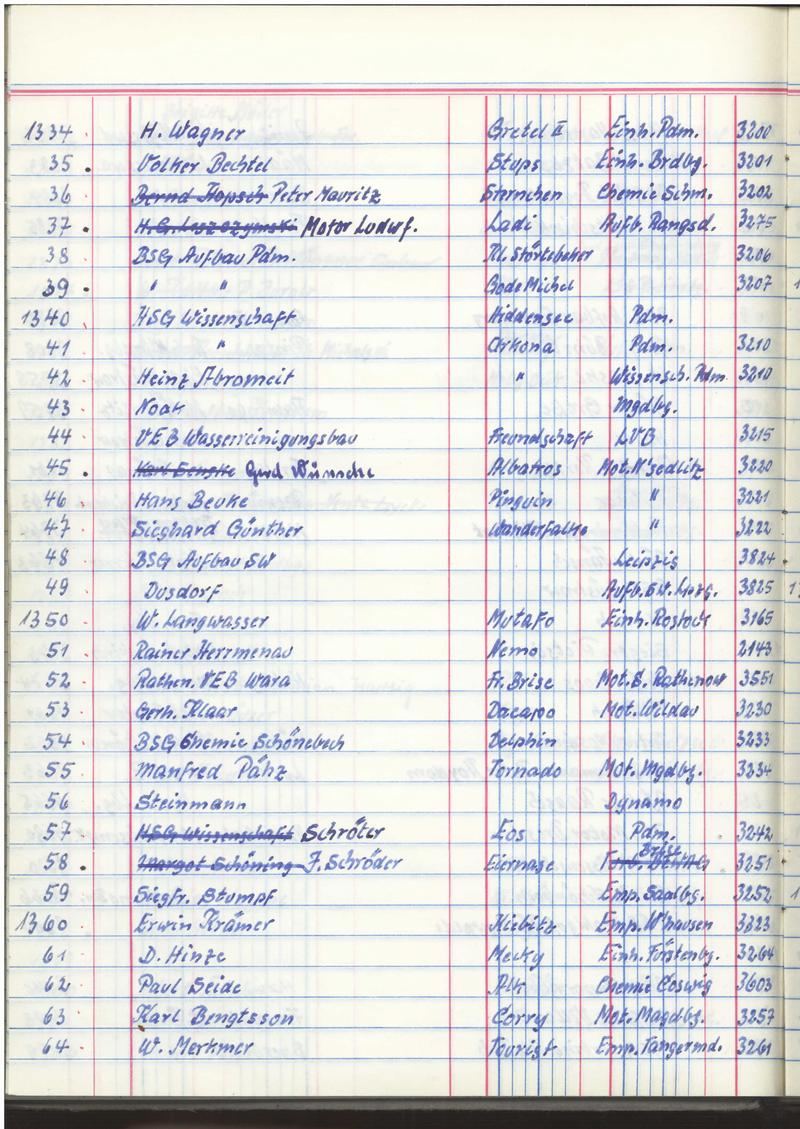 1334 H. Wagner Gretel II Einh. Pdm. 3200
35 Volker Bechtel Stups Einh. Brdbg. 3201
36 Bernd Hopsch Peter Mauritz Sternchen Chemie Schm. 3202
37 H.G. Leszozymski Motor Ludwf. Ladi Aufb. Rangsd. 3275
38 BSG Aufbau Pdm. Kl. Störtebeker 3206
39 " " Gode Michel 3207
1340 HSG Wissenschaft Hiddensee Pdm.
41 " Arkona Pdm. 3210
42 Heinz Abromeit " Wissensch. Pdm 3210
43 Noak Mgdbg.
44 VEB Wasserreinigungsbau Freundschaft LVB 3215
45 Gerd Wünsche Albatros Mot. N'sedlitz 3220
46 Hans Beuke Pinguin " 3221
47 Sieghard Günther Wanderfalke " 3222
48 BSG Aufbau SW Leipzig 3824
49 Dusdorf Aufb. SW. Lpzg. 3825
1350 W. Langwasser Mutafo Einh. Rostock 3165
51 Rainer Herrmenau Nemo 2143
52 Rathen. VEB Wara Fr. Brise Mot. S. Rathenow 3551
53 Gerh. Klaar Dacapo Mot. Wildau 3230
54 BSG Chemie Schönebeck Delphin 3233
55 Manfred Pähz Tornado Mot. Mgdbg. 3234
56 Steinmann Dynamo
57 HSG Wissenschaft Schröter Eos Pdm. 3242
58 Margot Schöning F. Schröder Eiernase Brise 3251
59 Siegfr. Stumpf Emp. Saalbg. 3252
1360 Erwin Krämer Kiebitz Emp. W'hausen 3223
61 D. Hinze Mecky Einh. Fürstenbg. 3264
62 Paul Seide Alk Chemie Coswig 3603
63 Karl Bengtsson Corry Mot. Magdbg. 3257
64 W. Merkmer Tourist Emp. Tangermd. 3261